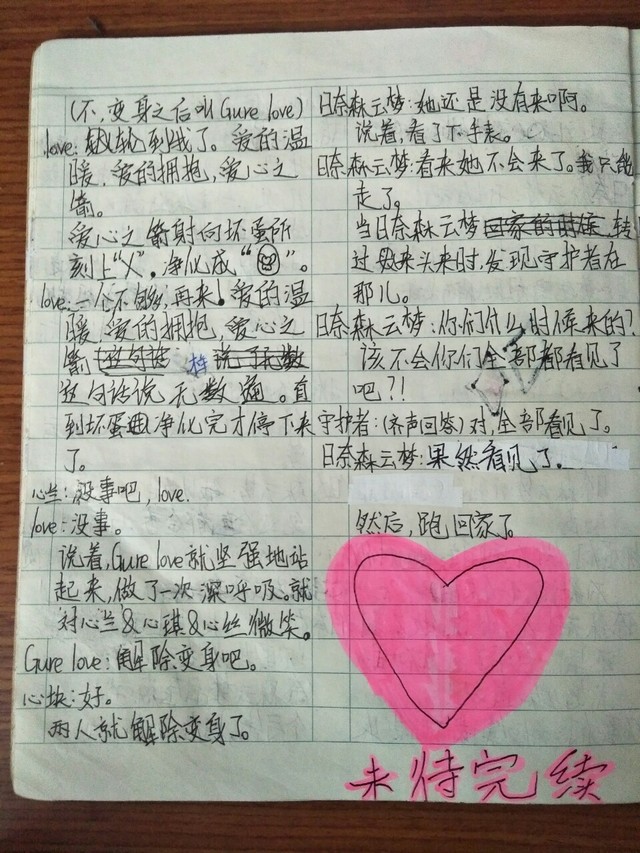 (不,变身之后叫Gure love)
love:轮到我了。爱的温
暖,爱的拥抱,爱心之
箭。
爱心之箭射向坏蛋所
刻上“乂”,净化成“ ”。
love:一个不够,再来!爱的温
暖,爱的拥抱,爱心之
箭
这句话说无数遍。直
到坏蛋净化完才停下来
了。
心兰:没事吧,love.
love:没事。
说着,Gure love就坚强地站
起来,做了一次深呼吸。就
对心兰&心琪&心丝微笑。
Gure love:解除变身吧。
心:好。
两人就解除变身了。
日奈森云梦:她还是没有来啊。
说着,看了下手表。
日奈森云梦:看来她不会来了。我只能
走了。
当日奈森云梦回家的时候转
过头来时,发现守护者在
那儿。
日奈森云梦:你们什么时候来的?
该不会你们全部都看见了
吧?!
守护者:(齐声回答)对,全部看见了。
日奈森云梦:果然看见了。
然后,跑回家了。
未待完续